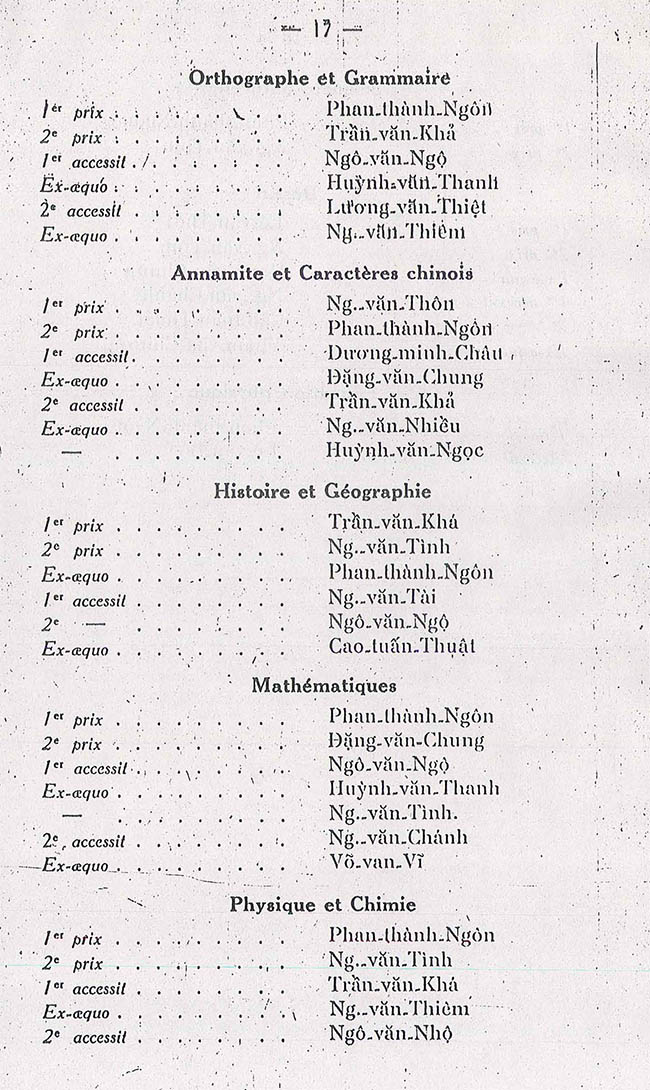 — 17 —
Orthographe et Grammaire
1er prix . . . . . . . . . Phan-thành-Ngôn
2e prix . . . . . . . . . Trần-văn-Khả
1er accessit . . . . . . . . Ngô-văn-Ngộ
Ex-æquo . . . . . . . . . Huỳnh-văn-Thanh
2e accessit . . . . . . . . Lương-văn-Thiệt
Ex-æquo . . . . . . . . . Ng.-văn-Thiêm
Annamite et Caractères chinois
1er prix . . . . . . . . . Ng.-văn-Thôn
2e prix . . . . . . . . . Phan-thành-Ngôn
1er accessit . . . . . . . . Dương-minh-Châu
Ex-æquo . . . . . . . . . Đặng-văn-Chung
2e accessit . . . . . . . . Trần-văn-Khả
Ex-æquo . . . . . . . . . Ng.-văn-Nhiều
— . . . . . . . . . Huỳnh-văn-Ngọc
Histoire et Géographie
1er prix . . . . . . . . . Trần-văn-Khá
2e prix . . . . . . . . . Ng.-văn-Tình
Ex-æquo . . . . . . . . . Phan-thành-Ngôn
1er accessit . . . . . . . . Ng.-văn-Tài
2e — . . . . . . . . . Ngô-văn-Ngộ
Ex-æquo . . . . . . . . . Cao-tuấn-Thuật
Mathématiques
1er prix . . . . . . . . . Phan-thành-Ngôn
2e prix . . . . . . . . . Đặng-văn-Chung
1er accessit . . . . . . . . Ngô-văn-Ngộ
Ex-æquo . . . . . . . . . Huỳnh-văn-Thanh
— . . . . . . . . . Ng.-văn-Tình.
2e accessit . . . . . . . . Ng.-văn-Chánh
Ex-æquo . . . . . . . . . Võ-van-Vĩ
Physique et Chimie
1er prix . . . . . . . . . Phan-thành-Ngôn
2e prix . . . . . . . . . Ng.-văn-Tình
1er accessit . . . . . . . . Trần-văn-Khá
Ex-æquo . . . . . . . . . Ng.-văn-Thiêm
2e accessit . . . . . . . . Ngô-văn-Nhộ